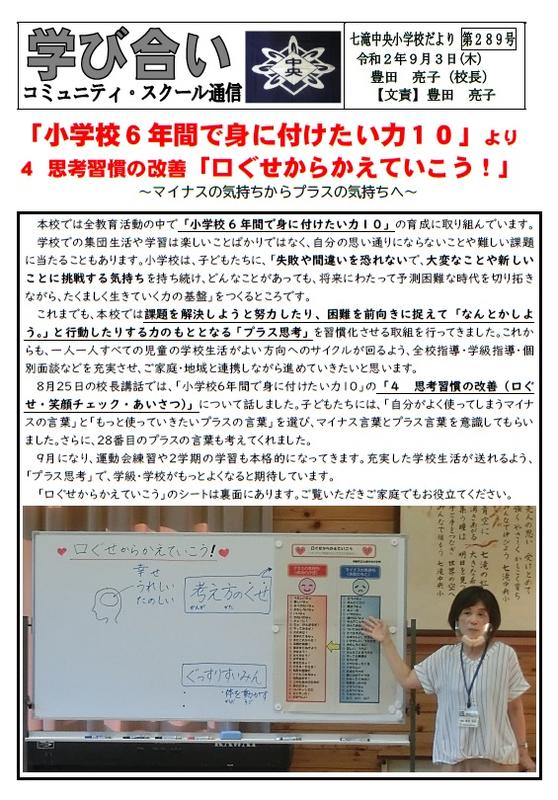 学び合い
コミュニティ・スクール通信
中央
七滝中央小学校だより 第289号
令和2年9月3日(木)
豊田 亮子（校長）
【文責】豊田 亮子
「小学校６年間で身に付けたい力１０」より
４ 思考習慣の改善「口ぐせからかえていこう！」
～マイナスの気持ちからプラスの気持ちへ～
本校では全教育活動の中で「小学校６年間で身に付けたい力１０」の育成に取り組んでいます。
学校での集団生活や学習は楽しいことばかりではなく、自分の思い通りにならないことや難しい課題
に当たることもあります。小学校は、子どもたちに、「失敗や間違いを恐れないで、大変なことや新しい
ことに挑戦する気持ちを持ち続け、どんなことがあっても、将来にわたって予測困難な時代を切り拓き
ながら、たくましく生きていく力の基盤」をつくるところです。
これまでも、本校では課題を解決しようと努力したり、困難を前向きに捉えて「なんとかしよ
う。」と行動したりする力のもととなる「プラス思考」を習慣化させる取組を行ってきました。これか
らも、一人一人すべての児童の学校生活がよい方向へのサイクルが回るよう、全校指導・学級指導・個
別面談などを充実させ、ご家庭・地域と連携しながら進めていきたいと思います。
８月25日の校長講話では、「小学校6年間で身に付けたい力10」の「４ 思考習慣の改善（口ぐ
せ・笑顔チェック・あいさつ）」について話しました。子どもたちには、「自分がよく使ってしまうマイナ
スの言葉」と「もっと使っていきたいプラスの言葉」を選び、マイナス言葉とプラス言葉を意識してもらい
ました。さらに、28番目のプラスの言葉も考えてくれました。
９月になり、運動会練習や2学期の学習も本格的になってきます。充実した学校生活が送れるよう、
「プラス思考」で、学級・学校がもっとよくなると期待しています。
「口ぐせからかえていこう」のシートは裏面にあります。ご覧いただきご家庭でもお役立てください。
口ぐせからかえていこう！
幸せ
うれしい
たのしい
考え方のくせ
かんが かた
ぐっすりすいみん
・体を動かす
口ぐせからかえていこう
KAWAI